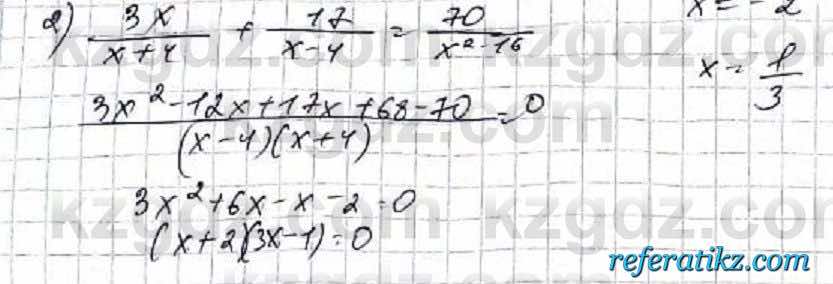 2) 3x/(x+4) + 17/(x-4) = 70/(x²-16)
(3x²-12x+17x+68-70)/((x-4)(x+4)) = 0
3x²+6x-x-2=0
(x+2)(3x-1)=0
x=-2
x=1/3
kzgdz.com
kzgdz.com
referatikz.com